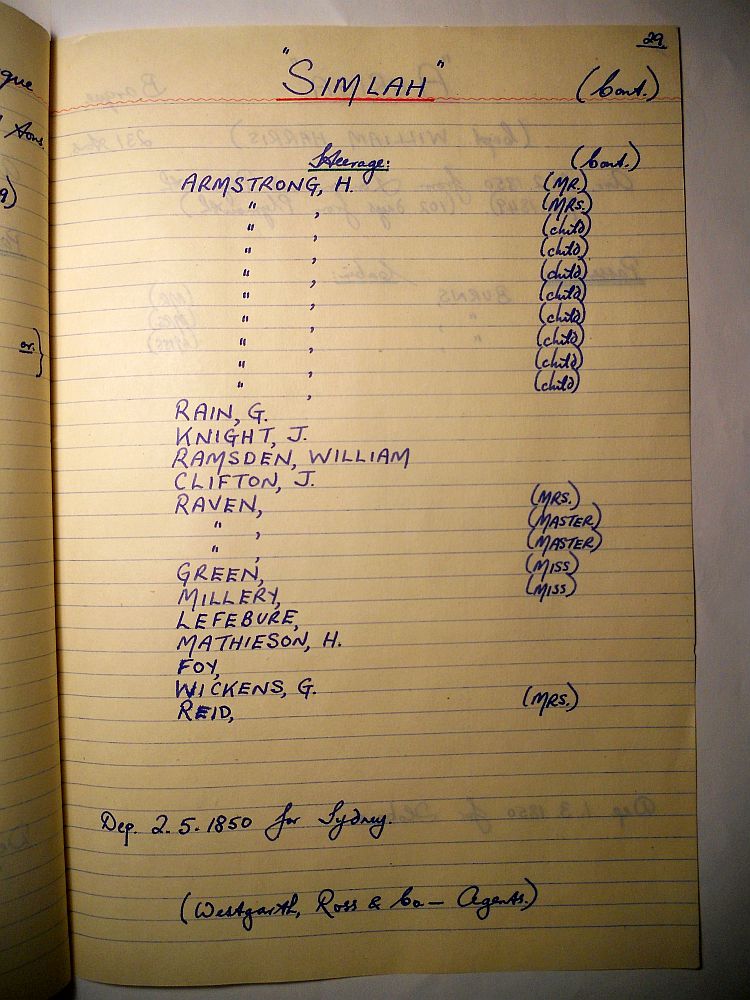 29
"SIMLAH" (Cont.)
Steerage: (Cont.)
ARMSTRONG, H. (MR.)
" , (MRS.)
" , (child)
" , (child)
" , (child)
" , (child)
" , (child)
" , (child)
" , (child)
" , (child)
RAIN, G.
KNIGHT, J.
RAMSDEN, WILLIAM
CLIFTON, J.
RAVEN, (MRS.)
" , (MASTER)
" , (MASTER)
GREEN, (MISS)
MILLERY, (MISS)
LEFEBURE,
MATHIESON, H.
FOY,
WICKENS, G.
REID, (MRS.)
Dep. 2.5.1850 for Sydney.
(Westgarth, Ross & Co — Agents.)